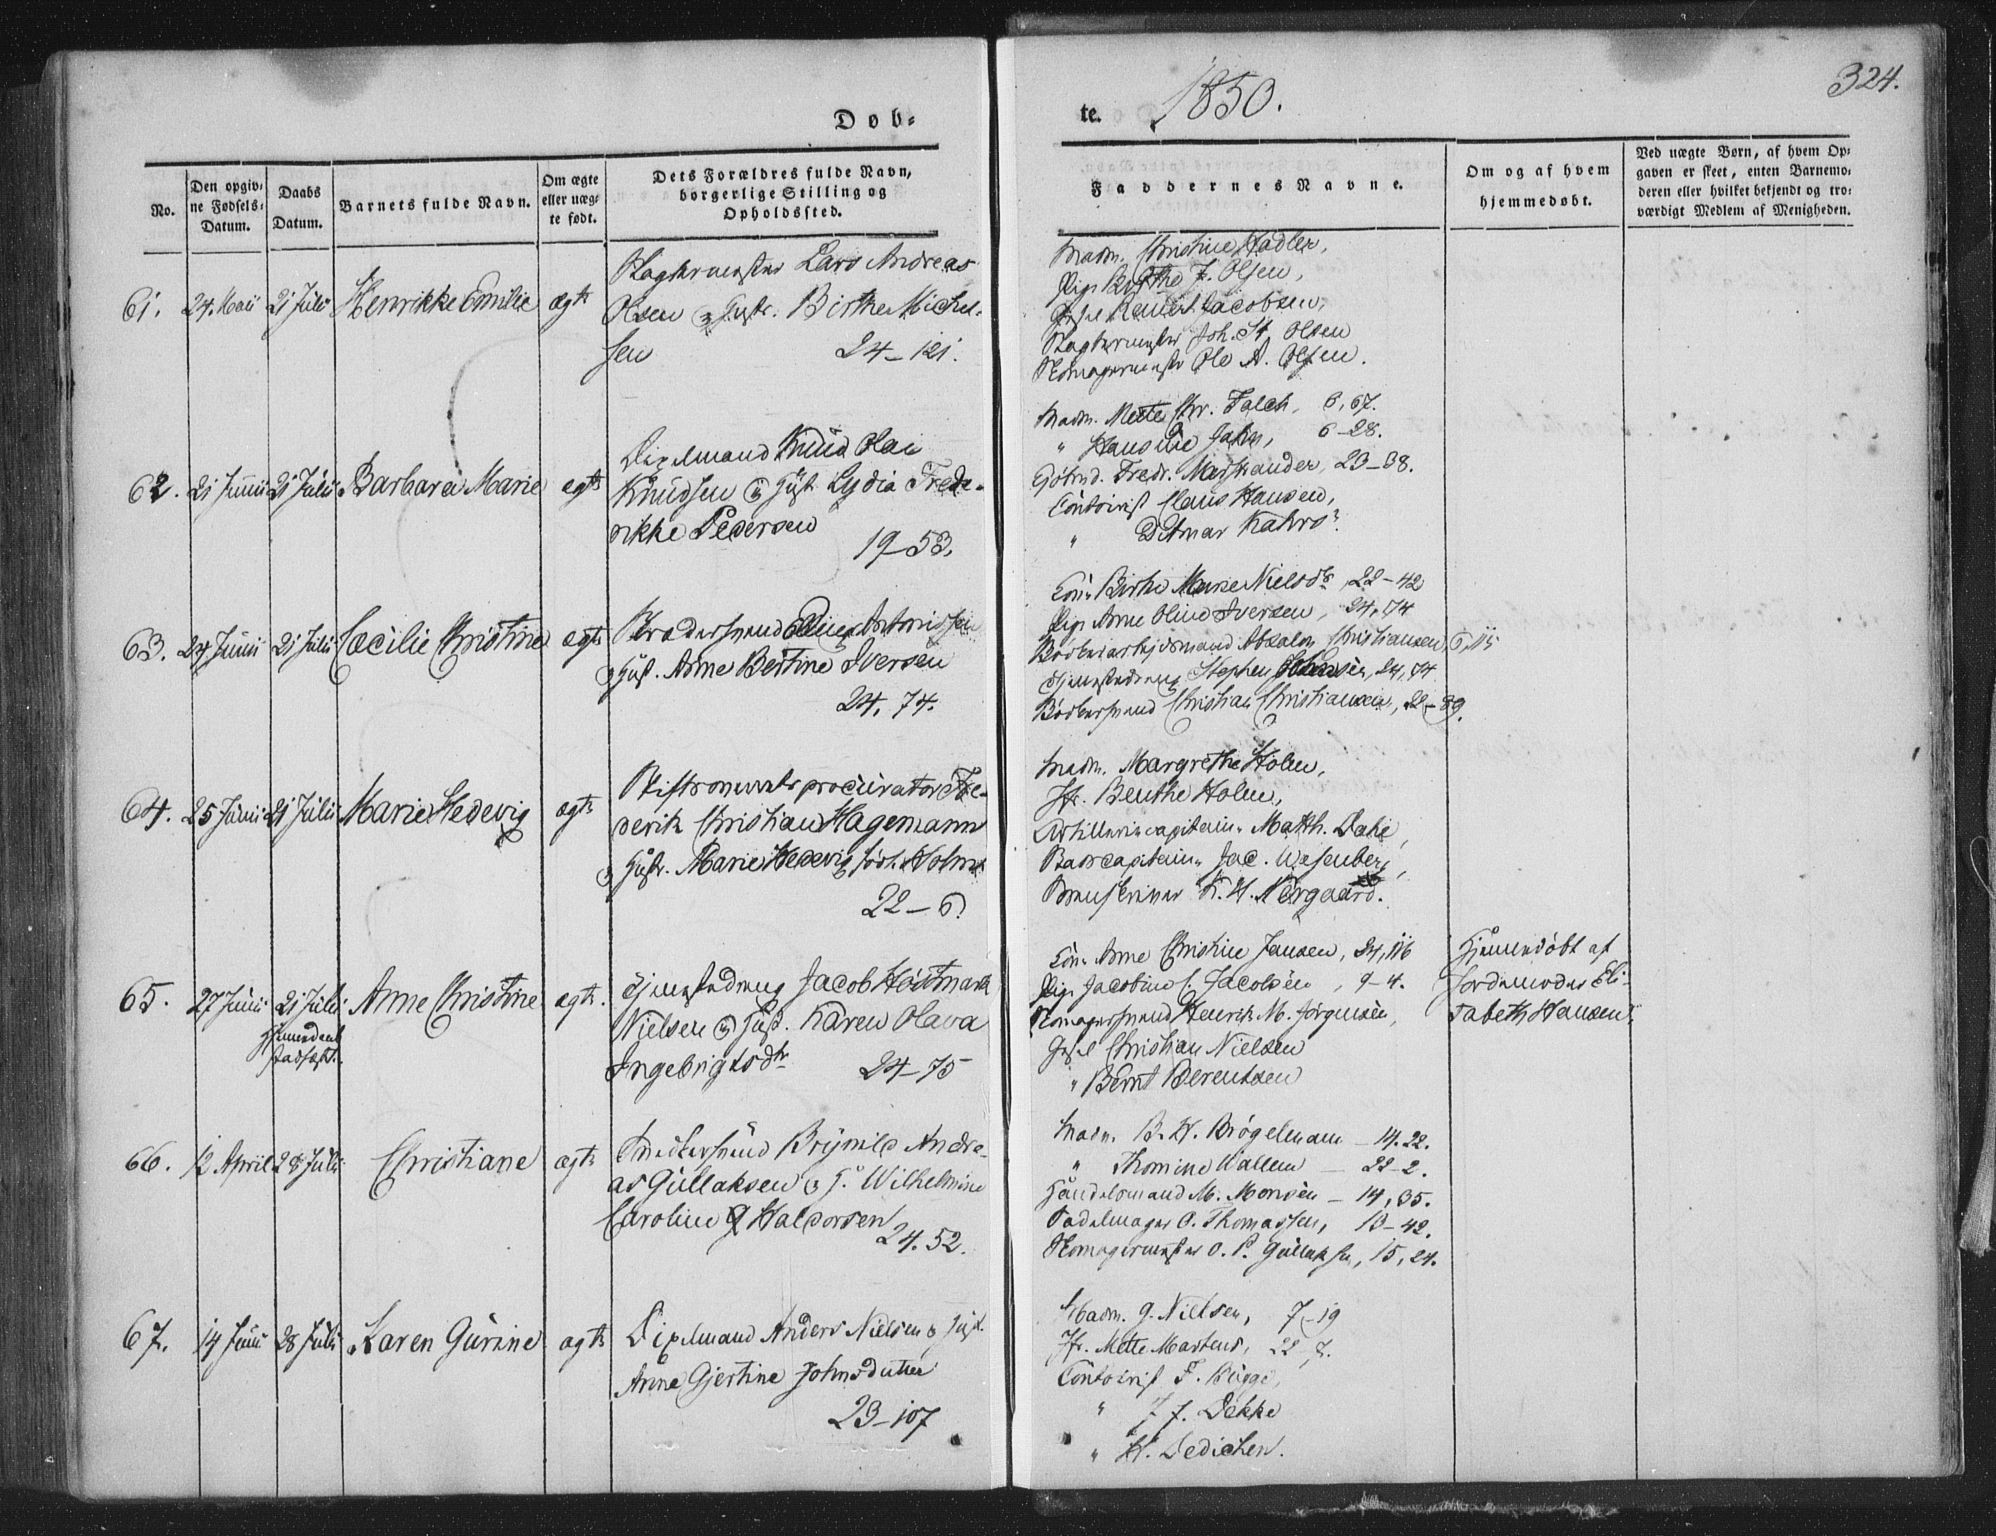 324.
Døb-
te. 1850.
No.
Den opgiv-
ne Fødsels-
Datum.
Daabs
Datum.
Barnets fulde Navn.
Om ægte
eller uæg-
te født.
Dets Forældres fulde Navn,
borgerlige Stilling og
Opholdssted.
Faddernes Navne.
Om og af hvem
hjemmedøbt.
Ved uægte Børn, af hvem Op-
gaven er skeet, enten Barnemo-
deren eller hvilket bekjendt og tro-
værdigt Medlem af Menigheden.
61. 24. Maii 21 Julii Henrikke Emilie ægte
Slagtermester Lars Andreas
Olsen & Hustr. Birthe Michel-
sen 24-121.
Madm. Christine Hadler,
Pige Birthe J. Olsen,
Jacobsen,
Slagtermester Joh. H. Olsen
Skomagermester Ole A. Olsen.
62. 21 Junii 21 Julii Barbara Marie ægte
Dixelmand Knud Olai
Knudsen & Hust. Lydia Frede-
rikke Pedersen
19-53.
Madm. Mette Chr. Falch, 6,67.
" Hansine Jahn, 6-28.
Fredr. Marstrander, 23-38.
Contoirist Claus Hansen,
" Ditmar Kahrs.
63. 24 Junii 21 Julii Cæcilie Christine ægte
Antonissen
& Hust. Anne Bertine Iversen
24. 74.
Kone Birthe Marie Nielsdr 22-42
Pige Anne Oline Iversen, 24,74
Absalon Christiansen, 6,115
Stephen 24,74
Bødkersvend Christian Christiansen, 22-39.
64. 25 Junii 21 Julii Marie Hedevig ægte
procurator Fre-
derik Christian Hagemann
& Hustr. Marie Hedevig født Holm
22-6.
Madm. Margrethe Holm,
Jfr. Benthe Holm,
Artillericapitain Matth. Dahl,
capitain Jac. Wesenberg,
K. H. Nergaard.
65. 27 Junii 21 Julii Anne Christine ægte.
Hjemmedaab
stadfæst.
Tjenestedreng Jacob Høstmark
Nielsen & Hust. Karen Olava
Ingebrigtsdtr 24-75
Kone Anne Christine Jansen, 24,116
Pige Jacobine C. Jacobsen, 9-4.
Skomagersvend Henrik M. Jørgensen,
Christian Nielsen
" Bernt Berentsen
Hjemmedøbt af
Jordemoder Eli-
sabeth Hansen.
66. 12 April 28 Julii Christiane ægte
Snedkersvend Brynild Andre-
as Gullaksen & H. Wilhelmine
Caroline G Halvorsen
24. 52.
Madm. B. H. Brøgelmann - 14.22.
" Thomine Wallem - 22-2.
Handelsmand M. Monsen - 14,35.
Sadelmager O. Thomassen, 13-42.
Skomagermester O. P. Gullaksen, 15,24.
67. 14 Junii 28 Julii Karen Gurine ægte
Dixelmand Anders Nielsen & Hust.
Anne Gjertine Johnsdatter
23-107
Madm. G. Nielsen, 7-19
Jfr. Mette Martens, 22-7.
Contoirist F. Bugge,
" J. J. Dekke
" H. Dedichen.